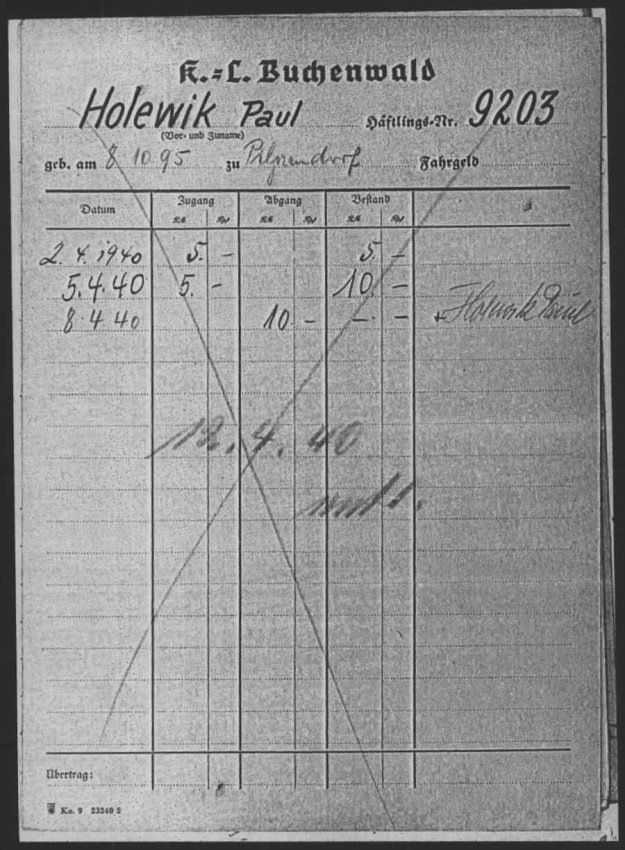 K.=L. Buchenwald
Holewik Paul Häftlings-Nr. 9203
(Vor- und Zuname)
geb. am 8. 10. 95 zu Fahrgeld
Datum Zugang Abgang Bestand
RM Rpf RM Rpf RM Rpf
2. 4. 1940 5. - 5. -
5. 4. 40 5. - 10 -
8. 4. 40 10 - - - Holewik Paul
12. 4. 40
Übertrag:
Ko. 9 23240 5